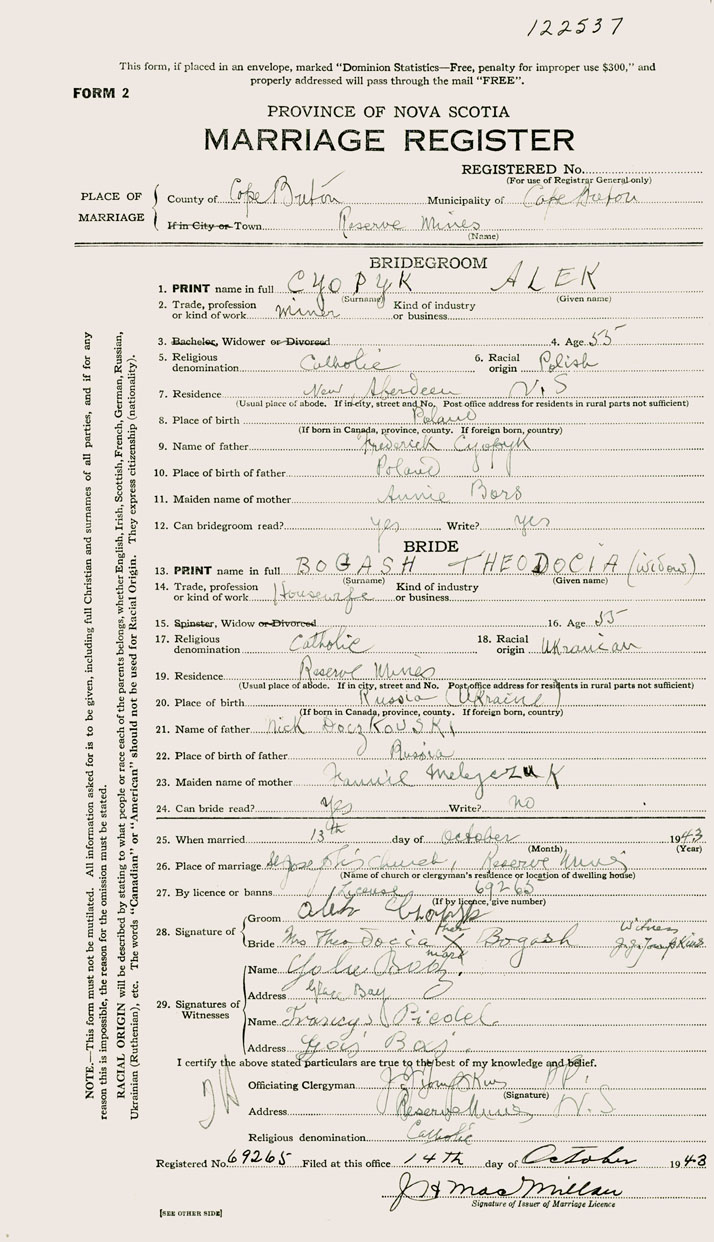 122537
This form, if placed in an envelope, marked "Dominion Statistics—Free, penalty for improper use $300," and
properly addressed will pass through the mail "FREE".
FORM 2
PROVINCE OF NOVA SCOTIA
MARRIAGE REGISTER
REGISTERED No.
(For use of Registrar General only)
PLACE OF MARRIAGE
County of Cape Breton Municipality of Cape Breton
If in City or Town Reserve Mines
(Name)
BRIDEGROOM
1. PRINT name in full CYOPYK ALEK
(Surname) (Given name)
2. Trade, profession or kind of work miner Kind of industry or business
3. Bachelor, Widower or Divorced 4. Age 55
5. Religious denomination Catholic 6. Racial origin Polish
7. Residence New Aberdeen N.S
(Usual place of abode. If in city, street and No. Post office address for residents in rural parts not sufficient)
8. Place of birth Poland
(If born in Canada, province, county. If foreign born, country)
9. Name of father Frederick Cyopyk
10. Place of birth of father Poland
11. Maiden name of mother Annie Bors
12. Can bridegroom read? yes Write? yes
BRIDE
13. PRINT name in full BOGASH THEODOCIA (widow)
(Surname) (Given name)
14. Trade, profession or kind of work Housewife Kind of industry or business
15. Spinster, Widow or Divorced 16. Age 55
17. Religious denomination Catholic 18. Racial origin Ukranian
19. Residence Reserve Mines
(Usual place of abode. If in city, street and No. Post office address for residents in rural parts not sufficient)
20. Place of birth Russia (Ukraine)
(If born in Canada, province, county. If foreign born, country)
21. Name of father Nick Doczkouski
22. Place of birth of father Russia
23. Maiden name of mother Fannie Melyczuk
24. Can bride read? yes Write? no
25. When married 13th day of October 1943
(Month) (Year)
26. Place of marriage St Joseph's Church, Reserve Mines
(Name of church or clergyman's residence or location of dwelling house)
27. By licence or banns License 69265
(If by licence, give number)
28. Signature of
Groom Alek
Bride Mrs Theodocia X Bogash
her
mark
Witness
29. Signatures of Witnesses
Name
Address Glace Bay
Name
Address
I certify the above stated particulars are true to the best of my knowledge and belief.
Officiating Clergyman J J Tompkins P.P.
(Signature)
Address Reserve Mines N.S
Religious denomination Catholic
Registered No. 69265 Filed at this office 14th day of October 1943
J H MacMillan
Signature of Issuer of Marriage Licence
[SEE OTHER SIDE]
NOTE.—This form must not be mutilated. All information asked for is to be given, including full Christian and surnames of all parties, and if for any
reason this is impossible, the reason for the omission must be stated.
RACIAL ORIGIN will be described by stating to what people or race each of the parents belongs, whether English, Irish, Scottish, French, German, Russian,
Ukrainian (Ruthenian), etc. The words "Canadian" or "American" should not be used for Racial Origin. They express citizenship (nationality).